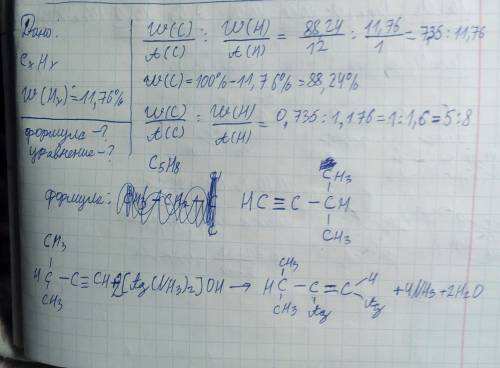 Дано:
CxHy
W(Hx)=11,76%
формула-?
уравнение-?
W(C)/A(C) : W(H)/A(H) = 88,24/12 : 11,76/1 = 7,35:11,76
W(C)=100%-11,76%=88,24%
W(C)/A(C) : W(H)/A(H) = 0,735:1,176=1:1,6=5:8
C5H8
формула:
CH3
HC≡C-CH
CH3
CH3
HC-C≡CH+2[Ag(NH3)2]OH→
CH3
CH3
HC-C=C
H
CH3
Ag
Ag
+4NH3+2H2O